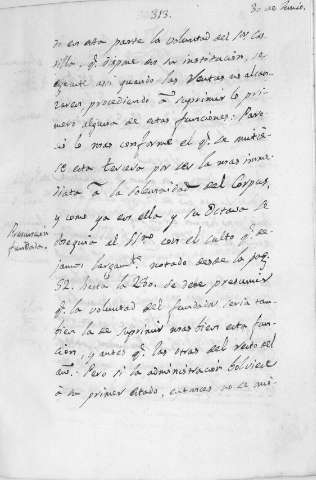 313.
30 de Junio.
do en esta parte la voluntad del Sr. Cas
tilla, q. dispone en su institución, se
egecute asi quando las Rentas no alcan
zaren, procediendo â suprimir lo pri
mero alguna de estas funciones: Pare
ce lo mas conforme el q. se
esta tercera por ser la mas inme
diata â la solemnidad del Corpus,
y como ya en ella y su Octava se
obsequia el SSmo. con el culto q. de
Presuncion
fundada.
jamos largamte. notado desde la pag.
52. hasta la 230. se deve presumir
q. la voluntad del fundador seria tam
bien la de suprimir mas bien esta fun
cion, y antes q. las otras del resto del
año. Pero si la administración bolviese
â su primer estado, entonces no se